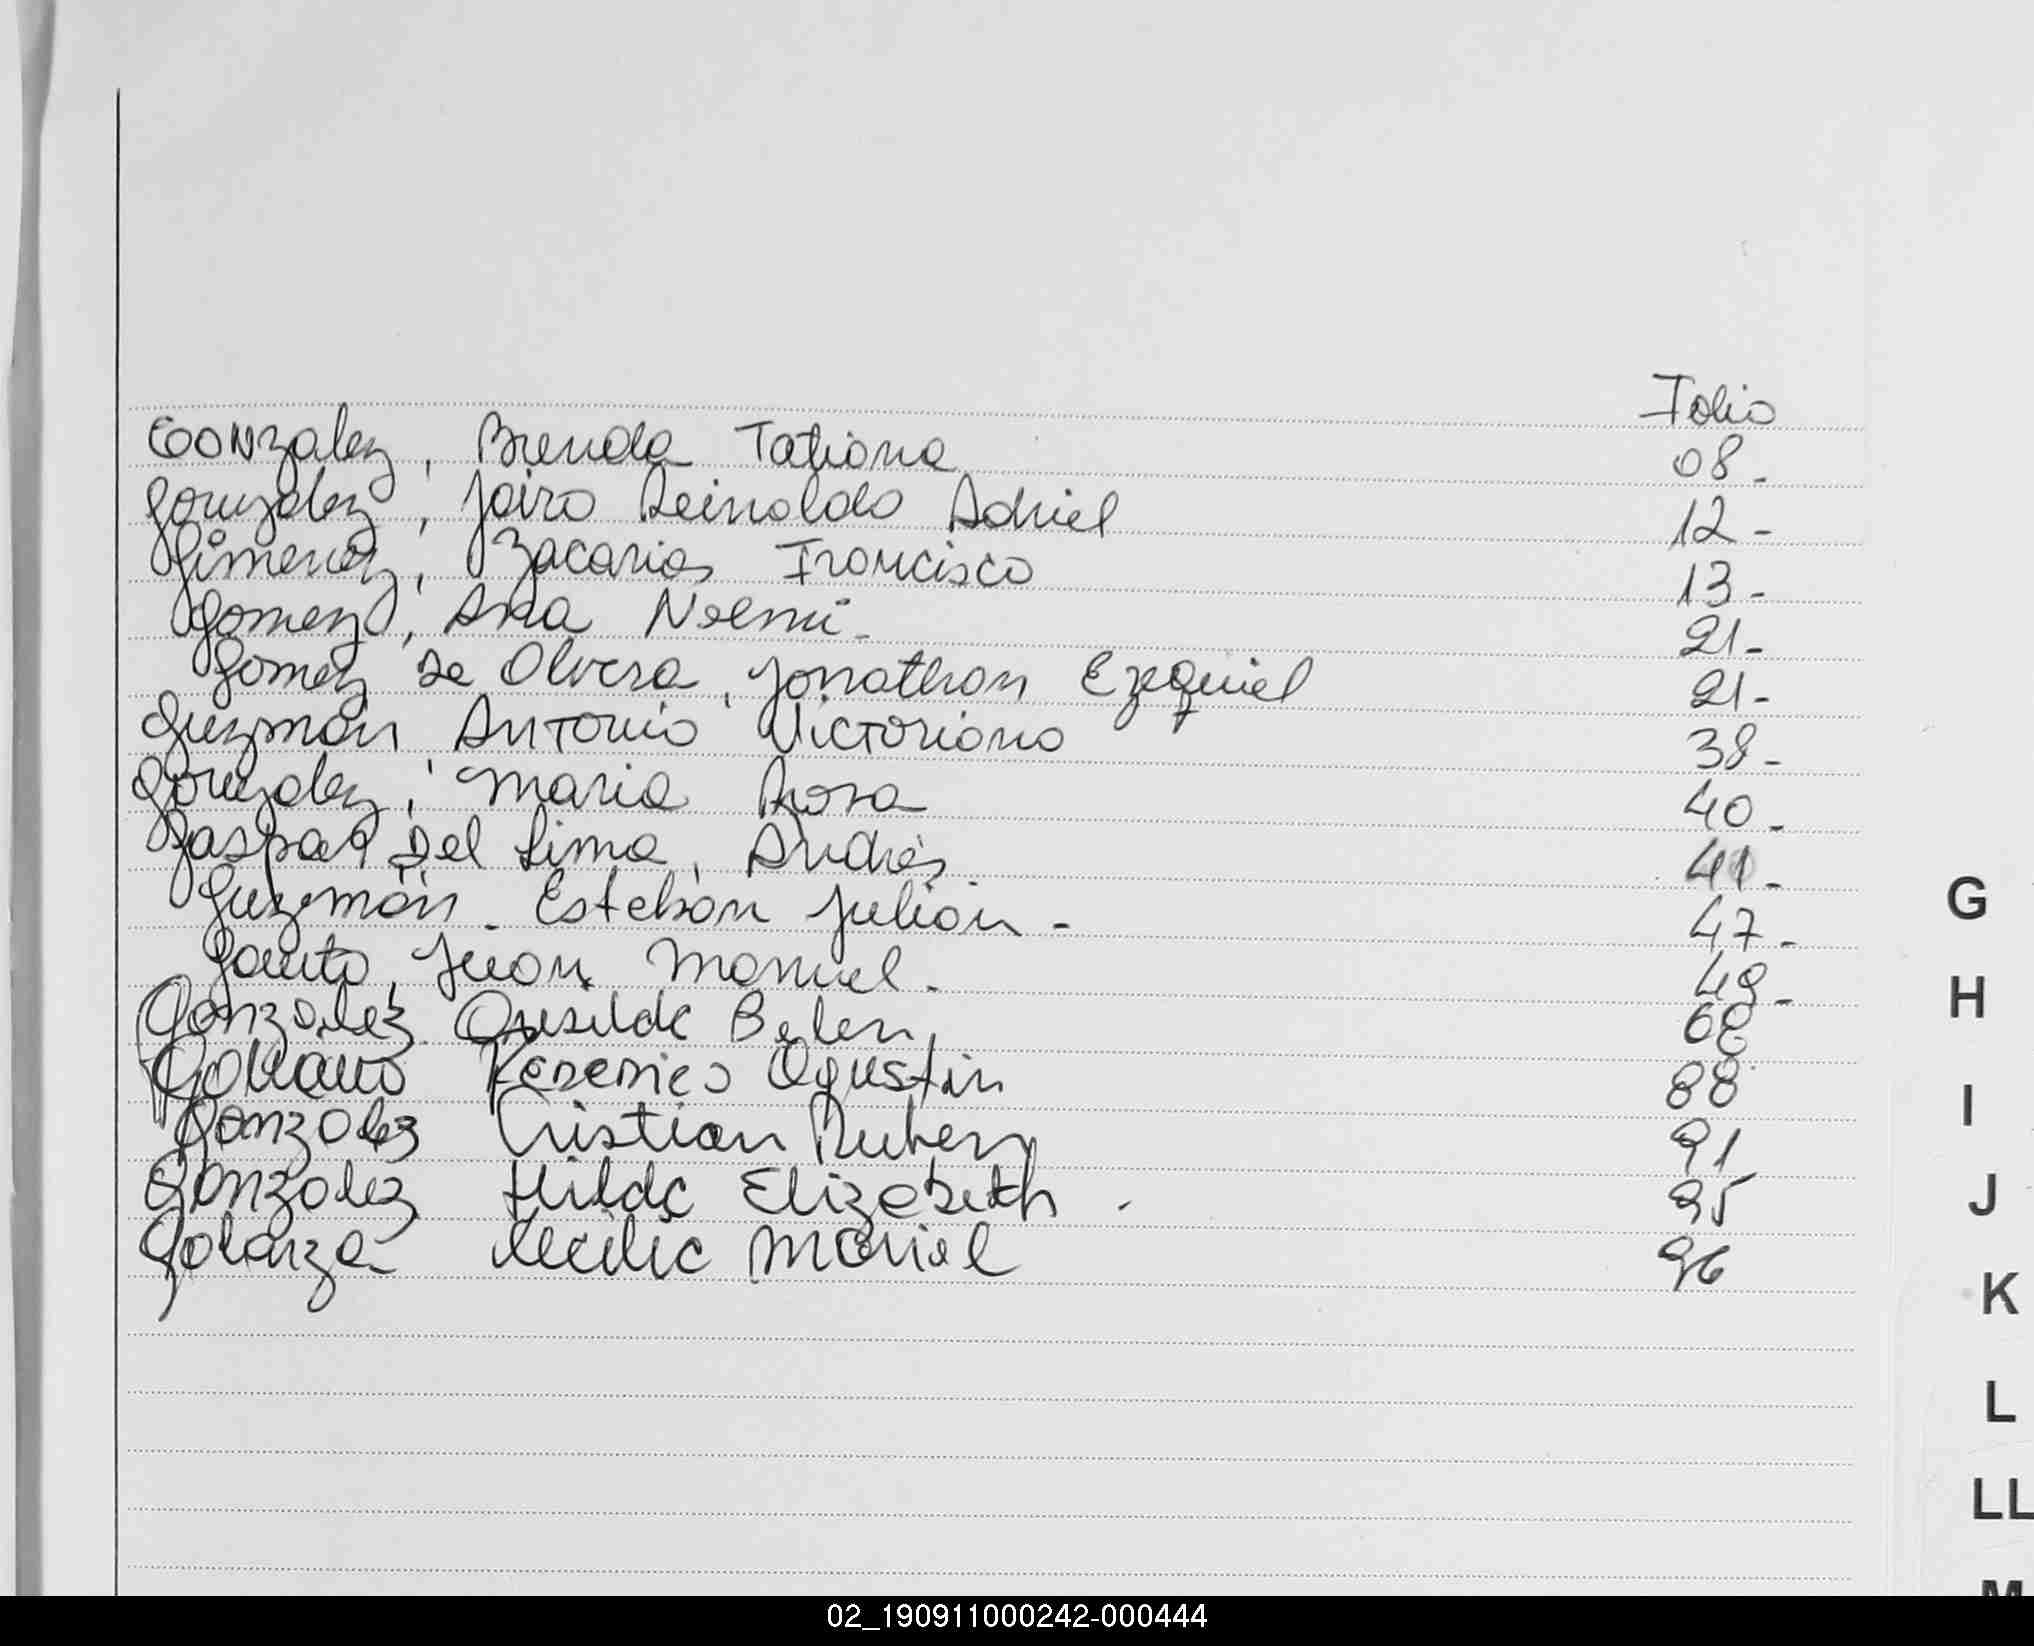 Folio
Gonzalez, Brenda Tatiana 08-
Gonzalez, Jairo Reinaldo Adriel 12-
Gimenez, Zacarias Francisco 13-
Gomez, Ana Noemí- 21-
Gomez de Olivera, Jonathan Ezequiel 21-
Guzmán Antonio Victoriano 38-
Gonzalez, Maria Rosa 40-
Gaspar Del Lima, Andrés 41-
Guzmán - Esteban Julián - 47-
Gauto, Juan Manuel - 49-
Gonzalez Belen 68
Agustin 88
Gonzalez Cristian Ruben 91
Gonzalez Hilda Elizabeth - 95
Galarza Cecilia Mariel 96
G
H
I
J
K
L
LL
M
02_190911000242-000444